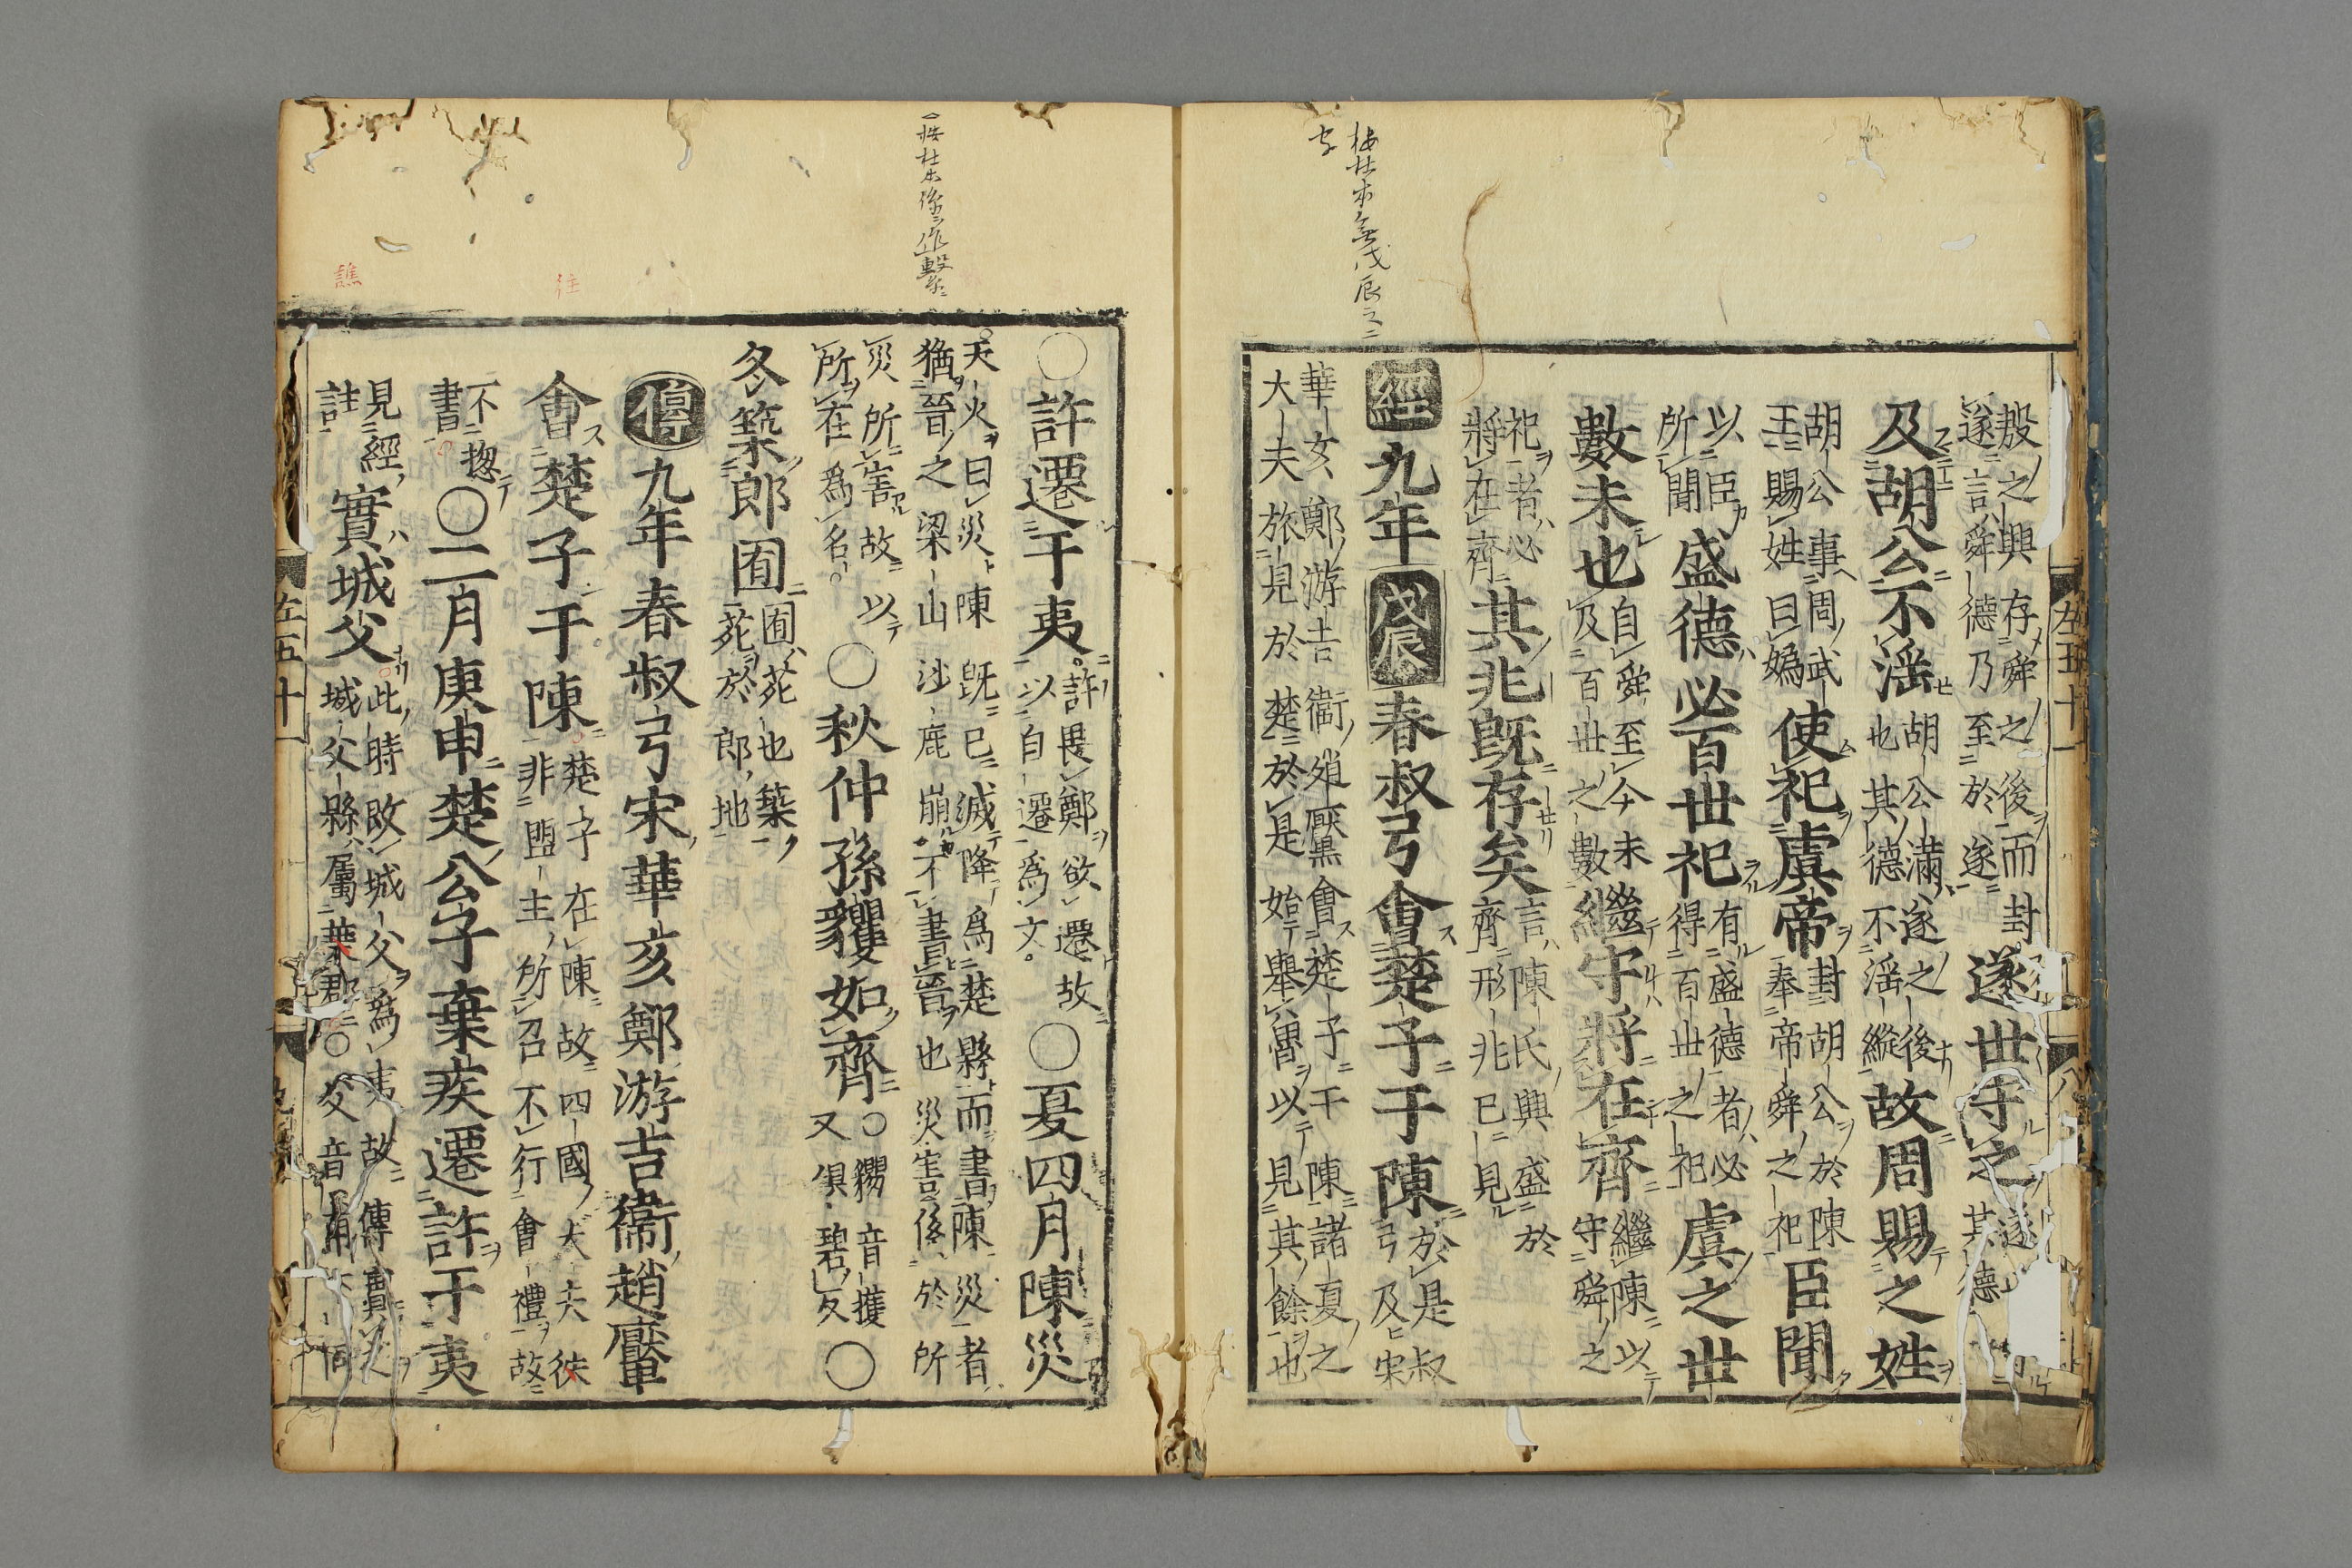 殷之興存舜之後而封
遂言舜德乃至於遂
遂世守之
及胡公不淫
胡公滿遂之後
也其德不淫縱
故周賜之姓
胡公事周武
王賜姓曰媯
使祀虞帝
封胡公於陳
奉帝舜之祀
臣聞
以臣
所聞
盛德必百世祀
有盛德者必
得百世之祀
虞之世
數未也
自舜至今未
及百世之數
繼守將在齊
繼陳以
守舜之
祀者必
將在齊
其兆既存矣
言陳氏興盛於
齊形兆已見
經九年戊辰春叔弓會楚子于陳
於是叔
弓及宋
華亥鄭游吉衞趙黶會楚子于陳諸夏之
大夫旅見於楚於是始舉魯以見其餘也
左五十一
八
○許遷于夷
許畏鄭欲遷故
以自遷爲文
○夏四月陳災
天火曰災陳既已滅降爲楚縣而書陳災者
猶晉之梁山沙鹿崩不書晉也災害係於所
災所害故以
所在爲名
○秋仲孫貜如齊
○貜音攫
又俱碧反
○
冬築郎囿
囿苑也築
苑於郎地
傳九年春叔弓宋華亥鄭游吉衞趙黶
會楚子于陳
楚子在陳故四國大夫徃
非盟主所召不行會禮故
不揔
書
○二月庚申楚公子棄疾遷許于夷
見經
註
實城父
此時改城父爲夷故傳實之
城父縣屬譙郡○父音甫
左五十一